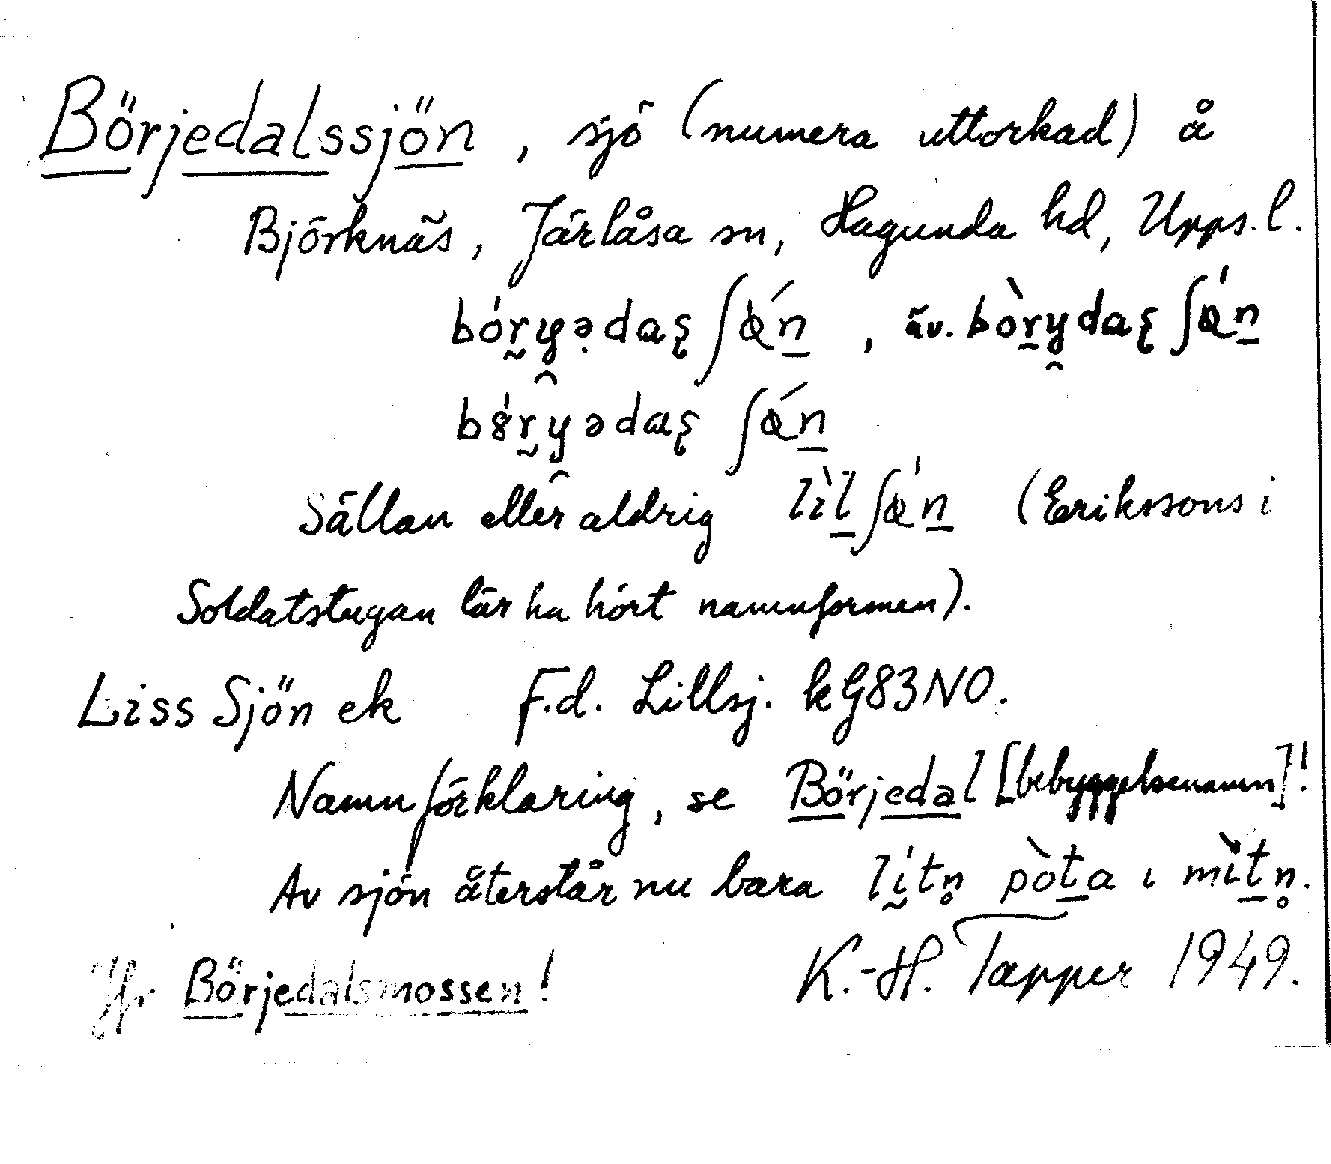 Börjedalssjön, sjö (numera uttorkad) å
Björknäs, Järlåsa sn, Hagunda hd, Upps. l.
bór̰yə̣daʂ ʃǿn̠, äv. bòr̠ydaʂ ʃǿn̠
b8́r̰yədaʂ ʃǿn̠
Sällan eller aldrig lìl̠ʃǿn̠ (Erikssons i
Soldatstugan lär ha hört namnformen).
Liss Sjön ek F.d. Lillsj. kG83NO.
Namnförklaring, se Börjedal [bebyggelsenamn]!
Av sjön återstår nu bara lḭ́tn̥ pòt̠a i mìt̠n̥.
Jfr Börjedalsmossen! K.-H. Tapper 1949.